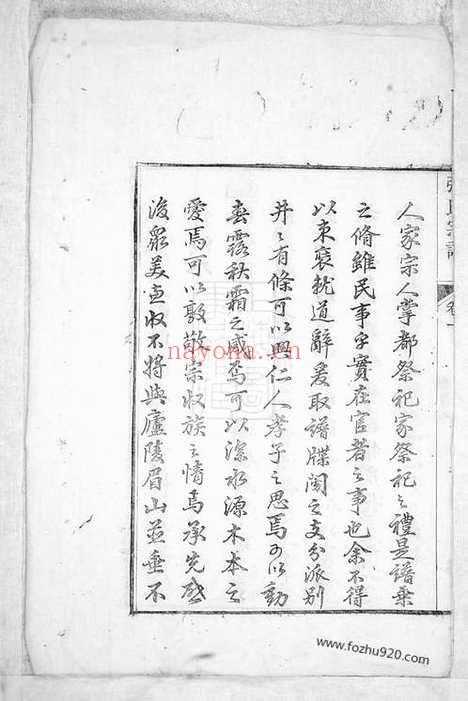 張氏宗譜
卷一
人家宗人掌都祭祀家祭祀之禮是譜乗
之脩雖民事乎實在官者之事也余不得
以未裒就道辭爰取譜牒閱之支分派別
井井有條可以興仁人孝子之思焉可以動
春露秋霜之感焉可以深水源木本之
愛焉可以敦敬宗收族之情焉承先啟
後衆美畫收不將與廬陵眉山並垂不
nayona.cn
www.fozhu920.com